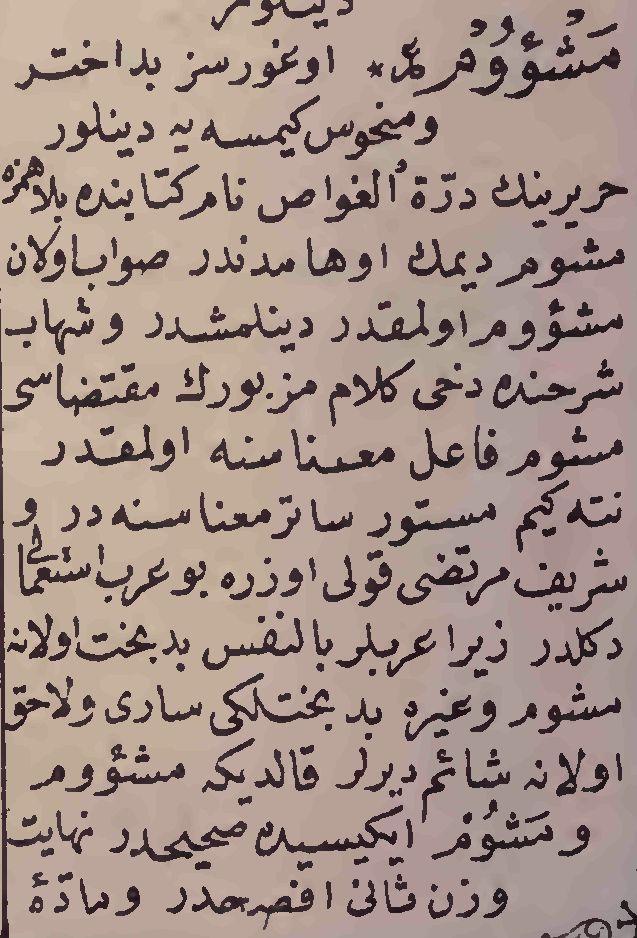 دینلور
مَشْؤُومٌ ع * اوغورسز بداختر
ومنحوس کیمسه یه دینلور
حریرینك درّة الغواص نام کتابنده بلاهمزه
مشوم دیمك اوهامدندر صواب اولان
مشؤوم اولمقدر دینلمشدر وشهاب
شرحنده دخی کلام مزبورك مقتضاسی
مشوم فاعل معناسنه اولمقدر
نته کیم مستور ساتر معناسنه در و
شریف مرتضی قولی اوزره بو عرب استعمالی
دکلدر زیرا عربلر بالنفس بدبخت اولانه
مشوم وغیره بدبختلکی ساری ولاحق
اولانه شائم دیرلر قالدیکه مشؤوم
ومَشُومٌ ایکیسیده صحیحدر نهایت
وزن ثانی افصحدر ومادّهٔ